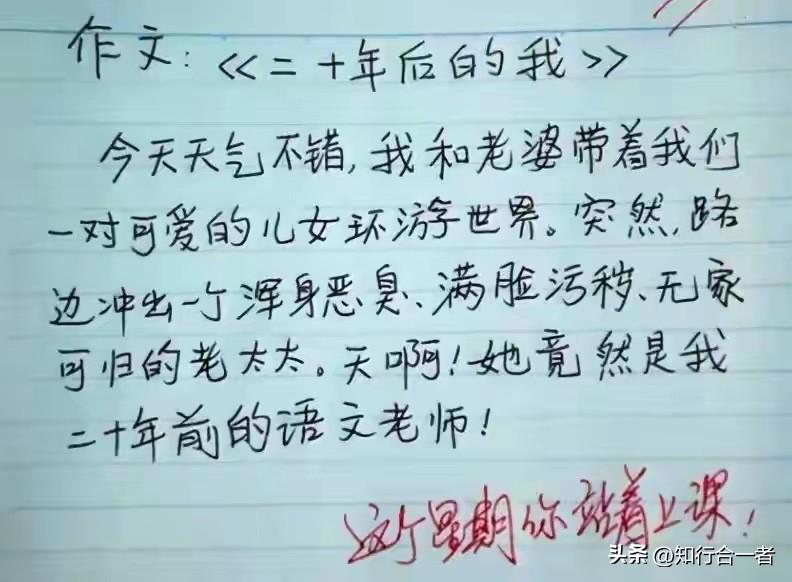 作文:《二十年后的我》
今天天气不错,我和老婆带着我们
一对可爱的儿女环游世界。突然,路
边冲出一个浑身恶臭、满脸污秽、无家
可归的老太太。天啊!她竟然是我
二十年前的语文老师!
这个星期你站着上课!
头条@知行合一者